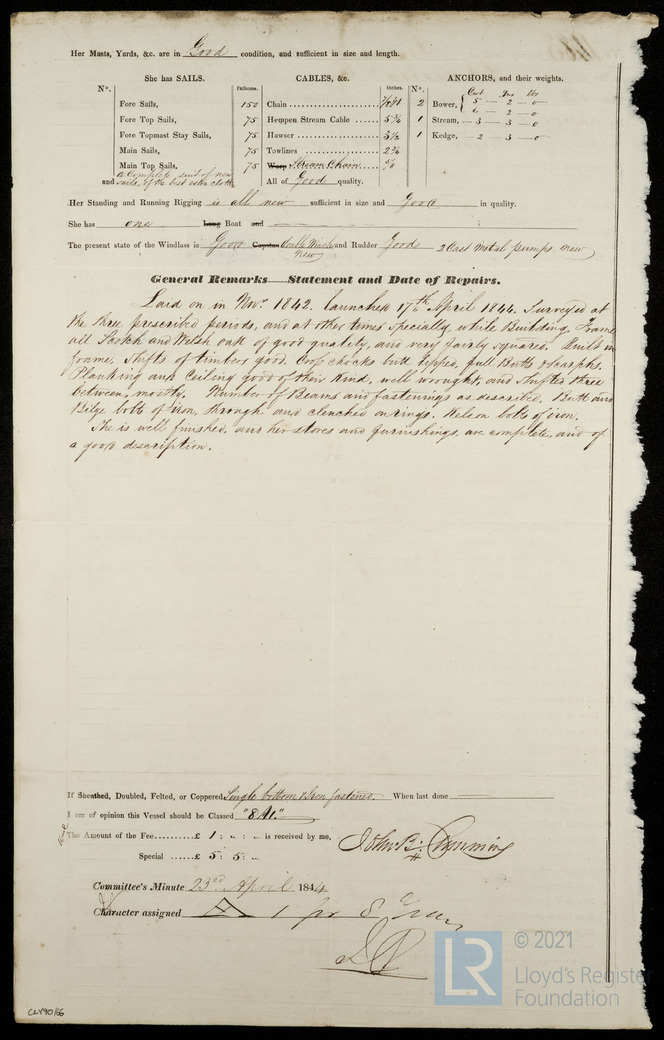 Her Masts, Yards, &c. are in Good condition, and sufficient in size and length.
She has SAILS. CABLES, &c. ANCHORS, and their weights.
N°. Fathoms. Inches. N°. Cwt Qrs lbs
Fore Sails, 150 Chain 2 Bower, 5 — 2 — 0
6 — 2 — 0
Fore Top Sails, 75 Hempen Stream Cable 5¾ 1 Stream, — 3 — 3 — 0
Fore Topmast Stay Sails, 75 Hawser 3½ 1 Kedge, — 2 — 3 — 0
Main Sails, 75 Towlines 2¾
Main Top Sails, 75 Warp Stream Chain
a Complete suit of new
and sails, of the best extra cloth All of Good quality.
Her Standing and Running Rigging is all new sufficient in size and Good in quality.
She has one Long Boat and
The present state of the Windlass is Good Capstan double Winch and Rudder Good 2 Cast Metal pumps. new
new
General Remarks—Statement and Date of Repairs.
Laid on in Novr. 1842. Launched 17th April 1844. Surveyed at
the three prescribed periods, and at other times specially while Building. Frame
all Scotch and Welsh oak of good quality, and very fairly squared. Built in
frames, Shifts of timbers good. Cross chocks butt tipped, full Butts & Scarphs.
Planking and Ceiling good of their Kind, well wrought, and Shifted three
between, mostly. Number of Beams and fastenings as described. Butt and
Bilge bolts of iron, through and clenched on rings. Kelson bolts of iron.
She is well finished, and her stores and furnishings, are complete, and of
a good description.
If Sheathed, Doubled, Felted, or Coppered Single bottom & Iron fastened. When last done
I am of opinion this Vessel should be Classed "8 A1."
The Amount of the Fee £ 1 : „ : „ is received by me,
Special £ 5 : 5 : „
John B. Cumming
Committee's Minute 23rd April 1844
Character assigned A 1 for 8 Years
© 2021
LR Lloyd's Register
Foundation